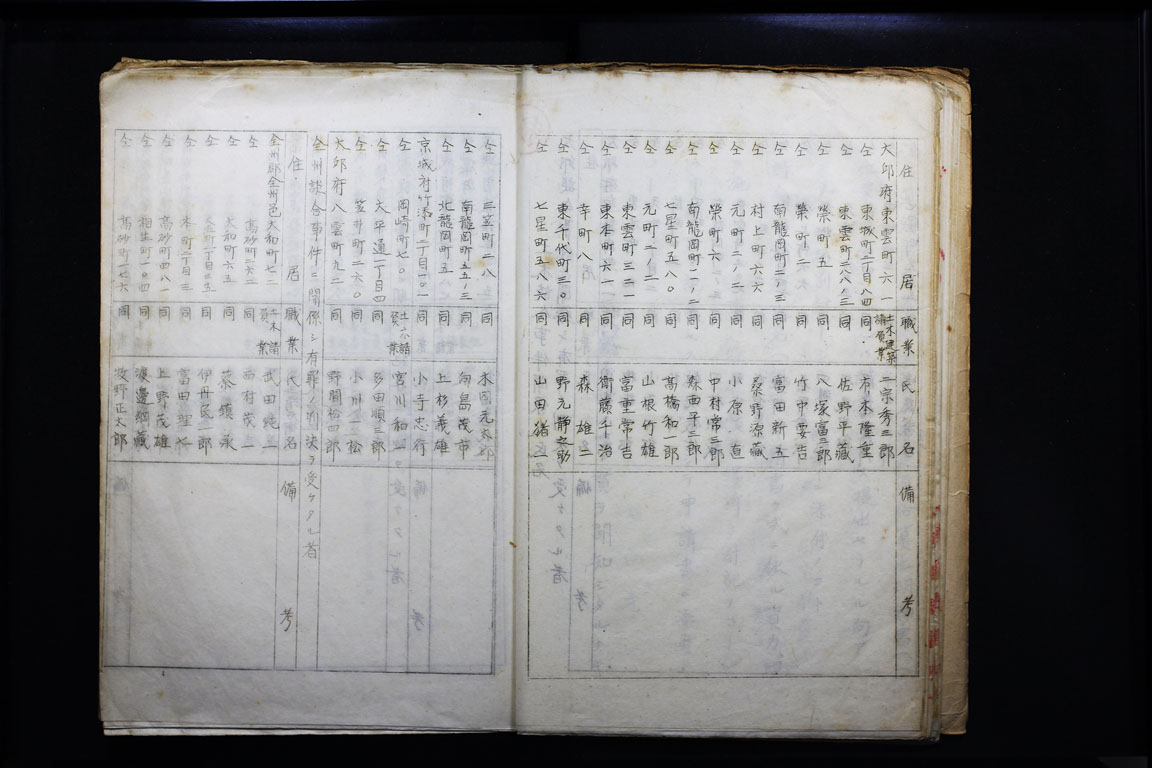 住居 職業 氏名 備考
大邱府東雲町六一 土木建築請負業 二宗秀三郎
仝 東城町二丁目八四 同 市本隆重
仝 東雲町二八八ノ三 同 佐野平藏
仝 榮町五 同 八塚富三郎
仝 榮町二六 同 竹中要吉
仝 南龍岡町二ノ三 同 富田新五
仝 村上町六六 同 桑野源藏
仝 元町二ノ二 同 小原直
仝 榮町六ノ二 同 中村常三郎
仝 南龍岡町一ノ二 同 森西平三郎
仝 七星町五八〇 同 髙橋和一郎
仝 元町二ノ二 同 山根竹雄
仝 東雲町三二一 同 富重常吉
仝 東本町六一 同 衛藤千治
仝 幸町八 同 森雄二
仝 東千代町三〇 同 野元靜之助
仝 七星町五八六 同 山田猪
仝 三笠町二八 同 木國元太郎
仝 南龍岡町五五ノ三 同 向島茂市
仝 北龍岡町五 同 上杉義雄
京城府竹添町二丁目一〇一 同 小寺忠行
仝 岡崎町七〇 土木請負業 宮川和一
仝 太平通一丁目四 同 多田順三郎
仝 笠井町二六〇 同 小川一松
大邱府八雲町九二 同 野間捨四郎
全州談合事件ニ關係シ有罪ノ判決ヲ受ケタル者
住居 職業 氏名 備考
全州郡全州邑大和町七二 土木請負業 武田純一
仝 髙砂町三六五 同 西村茂一
仝 大和町六五 同 蔡鎭承
仝 同 伊丹医一郎
仝 本町二丁目三 同 富田理
仝 髙砂町四八一 同 上野茂雄
仝 相生町一〇四 同 渡邊綱藏
仝 髙砂町一七六 同 牧野正太郎